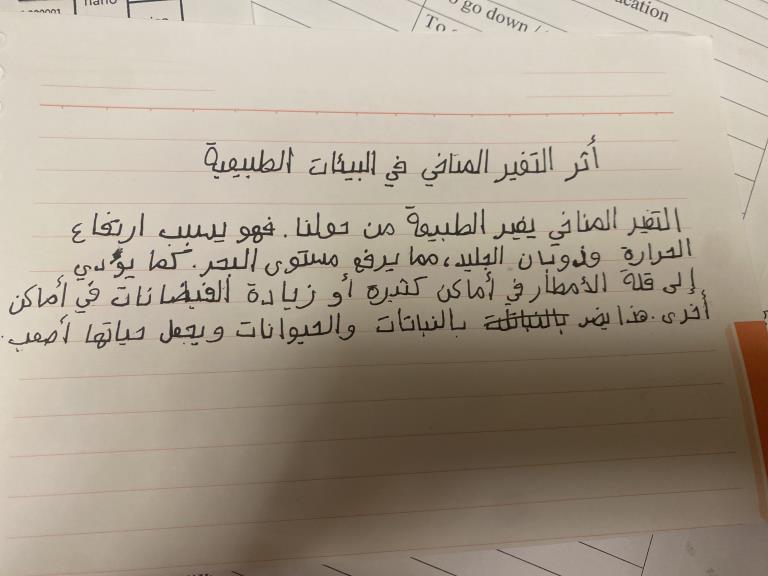 nano
go down /
To
أثر التغير المناخي في البيئات الطبيعية
التغير المناخي يغير الطبيعة من حولنا. فهو يسبب ارتفاع
الحرارة وذوبان الجليد، مما يرفع مستوى البحر. كما يؤدي
إلى قلة الأمطار في أماكن كثيرة أو زيادة الفيضانات في أماكن
أخرى. هذا يضر بالنباتات والحيوانات ويجعل حياتها أصعب.